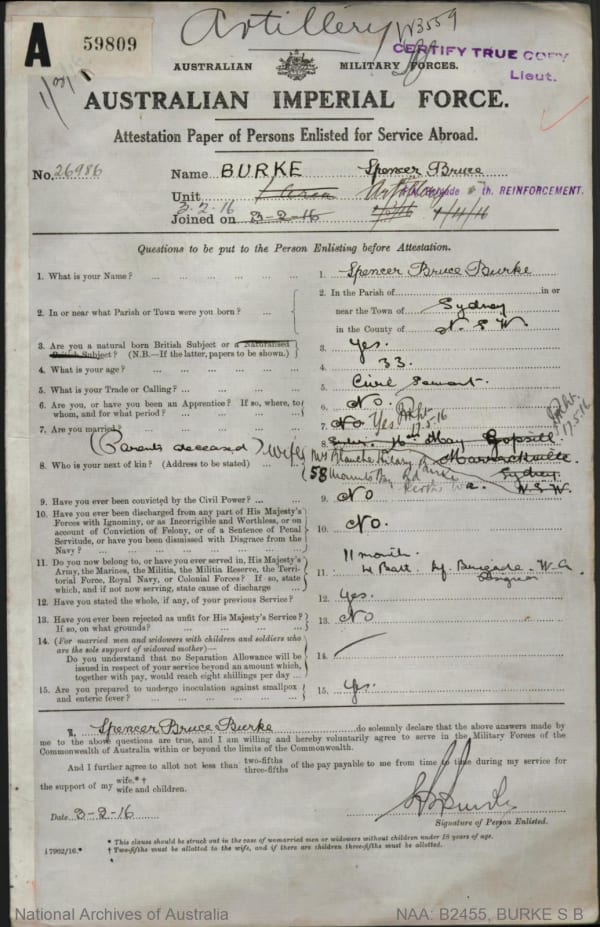 Artillery W3559
A 59809
CERTIFY TRUE COPY
Lieut.
AUSTRALIAN MILITARY FORCES.
AUSTRALIAN IMPERIAL FORCE.
Attestation Paper of Persons Enlisted for Service Abroad.
No. 26986 Name BURKE Spencer Bruce
Unit Artillery th. REINFORCEMENT.
3.2.16
Joined on 3-2-16
Questions to be put to the Person Enlisting before Attestation.
1. What is your Name? 1. Spencer Bruce Burke
2. In or near what Parish or Town were you born? 2. In the Parish of in or
near the Town of Sydney
in the County of N.S.W.
3. Are you a natural born British Subject or a Naturalised
British Subject? (N.B.—If the latter, papers to be shown.) 3. Yes.
4. What is your age? 4. 33.
5. What is your Trade or Calling? 5. Civil Servant.
6. Are you, or have you been an Apprentice? If so, where, to
whom, and for what period? 6. No.
7. Are you married? 7. No Yes 17.5.16
(Parents deceased) Wife Mrs Blanche Hilary Burke
8. Who is your next of kin? (Address to be stated) 8. 58 Rd Sydney N.S.W.
17.5.16
9. Have you ever been convicted by the Civil Power? 9. No
10. Have you ever been discharged from any part of His Majesty's
Forces with Ignominy, or as Incorrigible and Worthless, or on
account of Conviction of Felony, or of a Sentence of Penal
Servitude, or have you been dismissed with Disgrace from the
Navy? 10. No.
11. Do you now belong to, or have you ever served in, His Majesty's
Army, the Marines, the Militia, the Militia Reserve, the Terri-
torial Force, Royal Navy, or Colonial Forces? If so, state
which, and if not now serving, state cause of discharge 11. 11 months
Batt. Brigade W.A.
12. Have you stated the whole, if any, of your previous Service? 12. Yes.
13. Have you ever been rejected as unfit for His Majesty's Service?
If so, on what grounds? 13. No
14. (For married men and widowers with children and soldiers who
are the sole support of widowed mother)—
Do you understand that no Separation Allowance will be
issued in respect of your service beyond an amount which,
together with pay, would reach eight shillings per day 14.
15. Are you prepared to undergo inoculation against smallpox
and enteric fever? 15. Yes.
I, Spencer Bruce Burke do solemnly declare that the above answers made by
me to the above questions are true, and I am willing and hereby voluntarily agree to serve in the Military Forces of the
Commonwealth of Australia within or beyond the limits of the Commonwealth.
And I further agree to allot not less than two-fifths
three-fifths of the pay payable to me from time to time during my service for
the support of my wife.*†
wife and children.
Date 3-2-16 S B Burke
Signature of Person Enlisted.
17902/16.* * This clause should be struck out in the case of unmarried men or widowers without children under 18 years of age.
† Two-fifths must be allotted to the wife, and if there are children three-fifths must be allotted.
National Archives of Australia NAA: B2455, BURKE S B